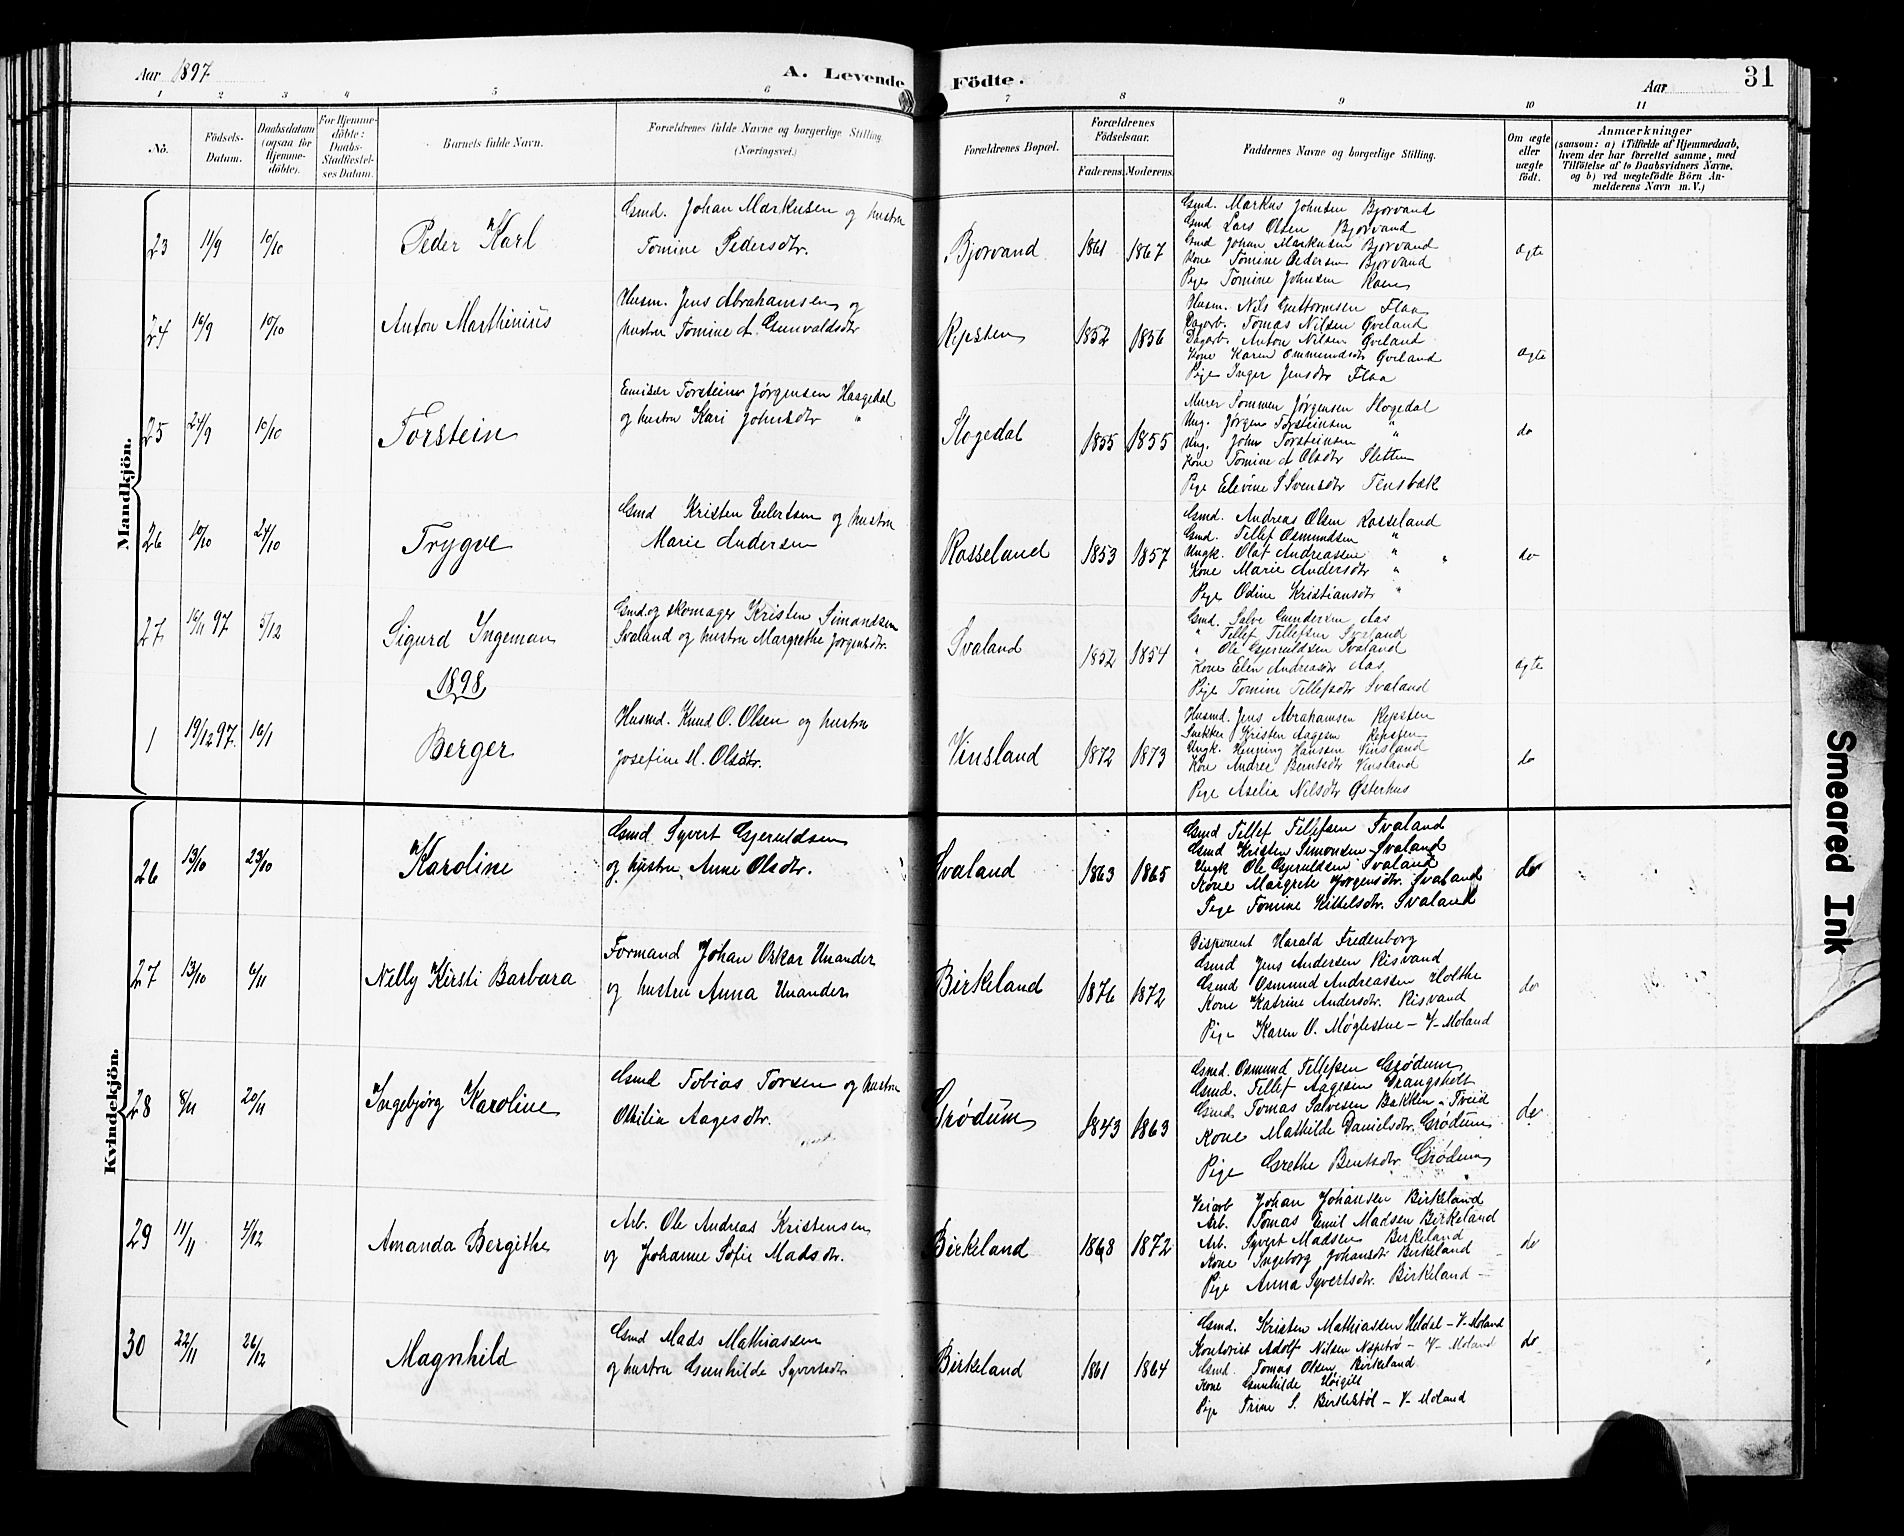 Aar 1897
A. Levende Födte.
Aar
31
1 2 3 4 5 6 7 8 9 10 11
No.
Födsels-Datum.
Daabsdatum (ogsaa for Hjemme-döbte).
For Hjemme-döbte: Daabs-Stadfæstel-ses Datum.
Barnets fulde Navn.
Forældrenes fulde Navne og borgerlige Stilling (Næringsvei.)
Forældrenes Bopæl.
Forældrenes Födselsaar.
Faderens Moderens
Faddernes Navne og borgerlige Stilling.
Om ægte eller uægte födt.
Anmærkninger
(saasom: a) i Tilfælde af Hjemmedaab, hvem der har forrettet samme, med Tilföielse af to Daabsvidners Navne, og b) ved uægtefödte Börn An-melderens Navn m. V.)
Mandkjön.
23 11/9 10/10 Peder Karl
Gmd. Johan Markusen og hustru
Tomine Pedersdtr.
Bjorvand 1861 1867
Gmd. Markus Johnsen Bjorvand
Gmd Lars Olsen Bjorvand
Gmd Johan Markusen Bjorvand
Kone Tomine Pedersen Bjorvand
Pige Tomine Johnsen
ægte
24 16/9 10/10 Anton Marthinius
Husm. Jens Abrahamsen og
hustru Tomine A. Gunvaldsdtr
Repsten 1852 1856
Husm. Nils Guttormsen Flaa
Dagarb. Tomas Nilsen Gveland
Dagarb. Anton Nilsen Gveland
Kone Karen Ommundsdtr Gveland
Pige Inger Jensdtr Flaa
ægte
25 24/9 10/10 Torstein
Emisær Torstein Jørgensen Haagedal
og hustru Kari Johnsdtr "
Stogedal 1855 1855
Murer Sommen Jørgensen Stogedal
Ung. Jørgen Torsteinsen "
Ung. John Torsteinsen "
Kone Tomine A Olsdtr Sletten
Pige Elevine S Svensdtr Tensbæk
do
26 10/10 24/10 Trygve
Gmd Kristen Eilertsen og hustru
Marie Andersen
Rosseland 1853 1857
Gmd. Andreas Olsen Rosseland
Gmd. Tellef Osmundsen "
Ungk. Olaf Andreassen "
Kone Marie Andersdtr "
Pige Odine Kristiansdtr "
do
27 16/11 97 5/12 Sigurd Ingeman
Gmd. og skomager Kristen Simonsen
Svaland og hustru Margrethe Jorgensdtr.
Svaland 1852 1854
Gmd. Salve Gundersen Aas
" Tellef Tellefsen Svaland
" Ole Gjeruldsen Svaland
Kone Elen Andreasdtr Aas
Pige Tomine Tellefsdtr Svaland
ægte
1898
1 19/12 97. 16/1 Berger
Husmd. Knud O. Olsen og hustru
Josefine M. Olsdtr.
Vensland 1872 1873
Husmd. Jens Abrahamsen Repsten
Snekker Kristen Aagesen Repsten
Ungk. Henning Hanssen Vensland
Kone Andrea Berntsdtr Vensland
Pige Aselia Nilsdtr Østerhus
do
Kvindekjön.
26 13/10 23/10 Karoline
Gmd Syvert Gjeruldsen
og hustru Anne Olsdtr.
Svaland 1863 1865
Gmd Tellef Tellefsen Svaland
Gmd Kristen Simonsen Svaland
Ungk Ole Gjeruldsen Svaland
Kone Margrete Jorgensdtr. Svaland
Pige Tomine Kittelsdtr. Svaland
do
27 13/10 6/11 Nelly Kirsti Barbara
Formand Johan Oskar Unander
og hustru Anna Unander
Birkeland 1876 1872
Disponent Harald Fredenborg
Gmd Jens Andersen Risvand
Gmd Osmund Andreassen Holthe
Kone Katrine Andersdtr. Risvand
Pige Karen O. Møglestue - V-Moland
do
28 8/11 20/11 Ingebjørg Karoline
Gmd Tobias Torsen og hustru
Othilia Aagesdtr.
Grödum 1843 1863
Gmd. Osmund Tellefsen Grödum
Gmd. Tellef Aagesen Drangsholt
Gmd. Tomas Salvesen Bakken i Tveid
Kone Mathilde Danielsdtr. Grödum
Pige Grethe Berntsdtr Grödum
do
29 11/11 4/12 Amanda Bergithe
Arb. Ole Andreas Kristensen
og Johanne Sofie Madsdtr.
Birkeland 1868 1872
Veiarb Johan Johansen Birkeland
Arb. Tomas Emil Madsen Birkeland
Arb. Syvert Madsen Birkeland
Kone Ingeborg Johansdtr Birkeland
Pige Anna Syvertsdtr. Birkeland
do
30 22/11 26/12 Magnhild
Gmd Mads Mathiassen
og hustru Gunhilde Syvertsdtr
Birkeland 1861 1864
Gmd. Kristen Mathiassen Heldal - V-Moland
Kontorist Adolf Nilsen - V-Moland
Gmd. Tomas Olsen Birkeland
Kone Gunhilde Høigilt
Pige Trine S. Birkestøl - V-Moland
do
Smeared Ink